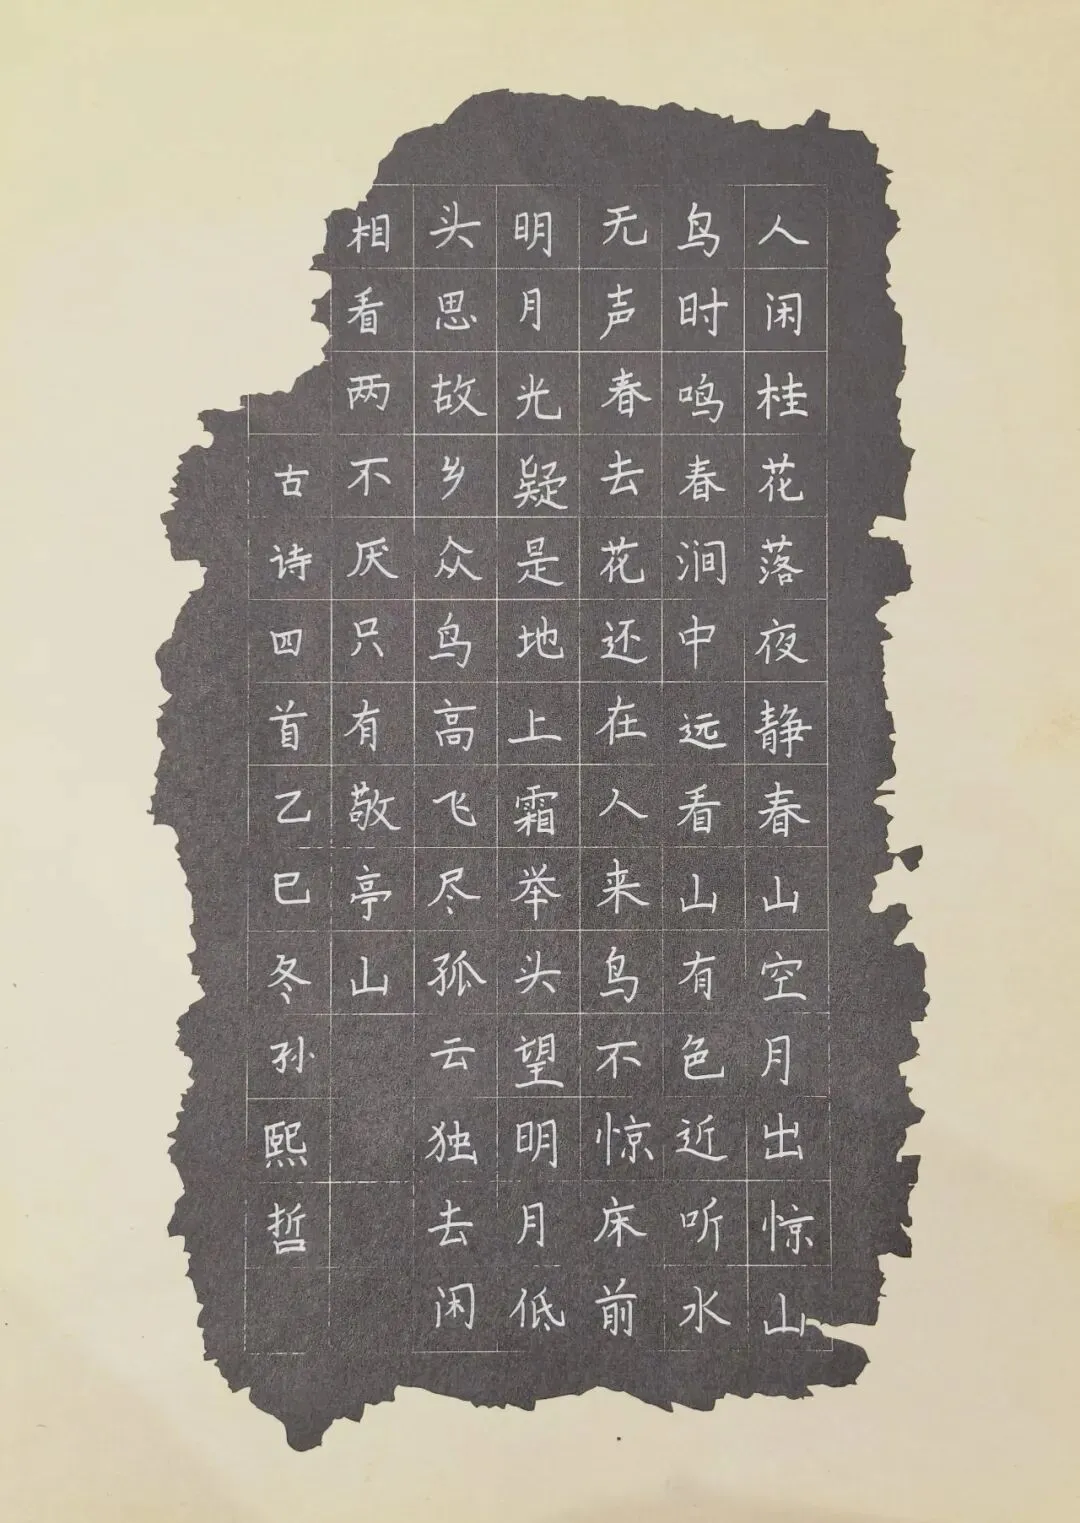 人闲桂花落夜静春山空月出惊山
鸟时鸣春涧中远看山有色近听水
无声春去花还在人来鸟不惊床前
明月光疑是地上霜举头望明月低
头思故乡众鸟高飞尽孤云独去闲
相看两不厌只有敬亭山
古诗四首乙巳冬孙熙哲